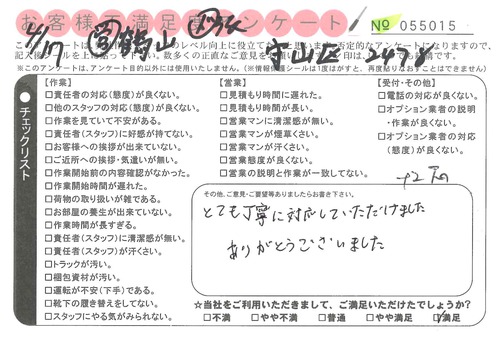 お客様の満足度アンケート
№ 055015
4/17
守山区
2478
※このアンケートは、アンケート目的以外には使用いたしません。(※情報保護シールは1度はがすと、再度貼りなおすことはできません)
チェックリスト
【作業】
□責任者の対応(態度)が良くない。
□他のスタッフの対応(態度)が良くない。
□作業を見ていて不安がある。
□責任者(スタッフ)に好感が持てない。
□お客様への挨拶が出来ていない。
□ご近所への挨拶・気遣いが無い。
□作業開始前の内容確認がなかった。
□作業開始時間が遅れた。
□荷物の取り扱いが雑である。
□お部屋の養生が出来ていない。
□作業時間が長すぎる。
□責任者(スタッフ)に清潔感が無い。
□責任者(スタッフ)が汗くさい。
□トラックが汚い。
□梱包資材が汚い。
□運転が不安(下手)である。
□靴下の履き替えをしてない。
□スタッフにやる気がみられない。
【営業】
□見積もり時間に遅れた。
□見積もり時間が長い。
□営業マンに清潔感が無い。
□営業マンが煙草くさい。
□営業マンが汗くさい。
□営業態度が良くない。
□営業の説明と作業が一致してない。
【受付・その他】
□電話の対応が良くない。
□オプション業者の説明
・作業が良くない。
□オプション業者の対応
(態度)が良くない。
その他、ご意見・ご要望等ありましたらお書き下さい。
とても丁寧に対応していただけました
ありがとうございました
☆当社をご利用いただきまして、ご満足いただけたでしょうか?
□不満 □やや不満 □普通 □やや満足 □満足